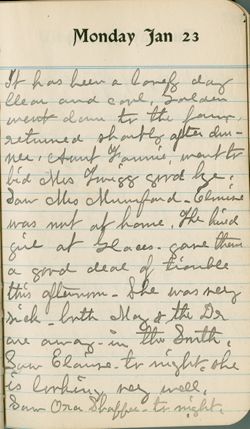 Monday Jan 23
It has been a lovely day
clear and cool, Golden
went down to the farm,
returned shortly after din-
ner, Aunt Fannie, went to
bid Mrs Twigg good bye.
Saw Mrs Mumford - Elmire
was not at home, The hired
girl at Graces - gave them
a good deal of trouble
this afternoon - She was very
sick - both May & the Dr
are away - in the South,
Saw Elaine - to night, she
is looking very well,
Saw Ora Shaffer - to night,